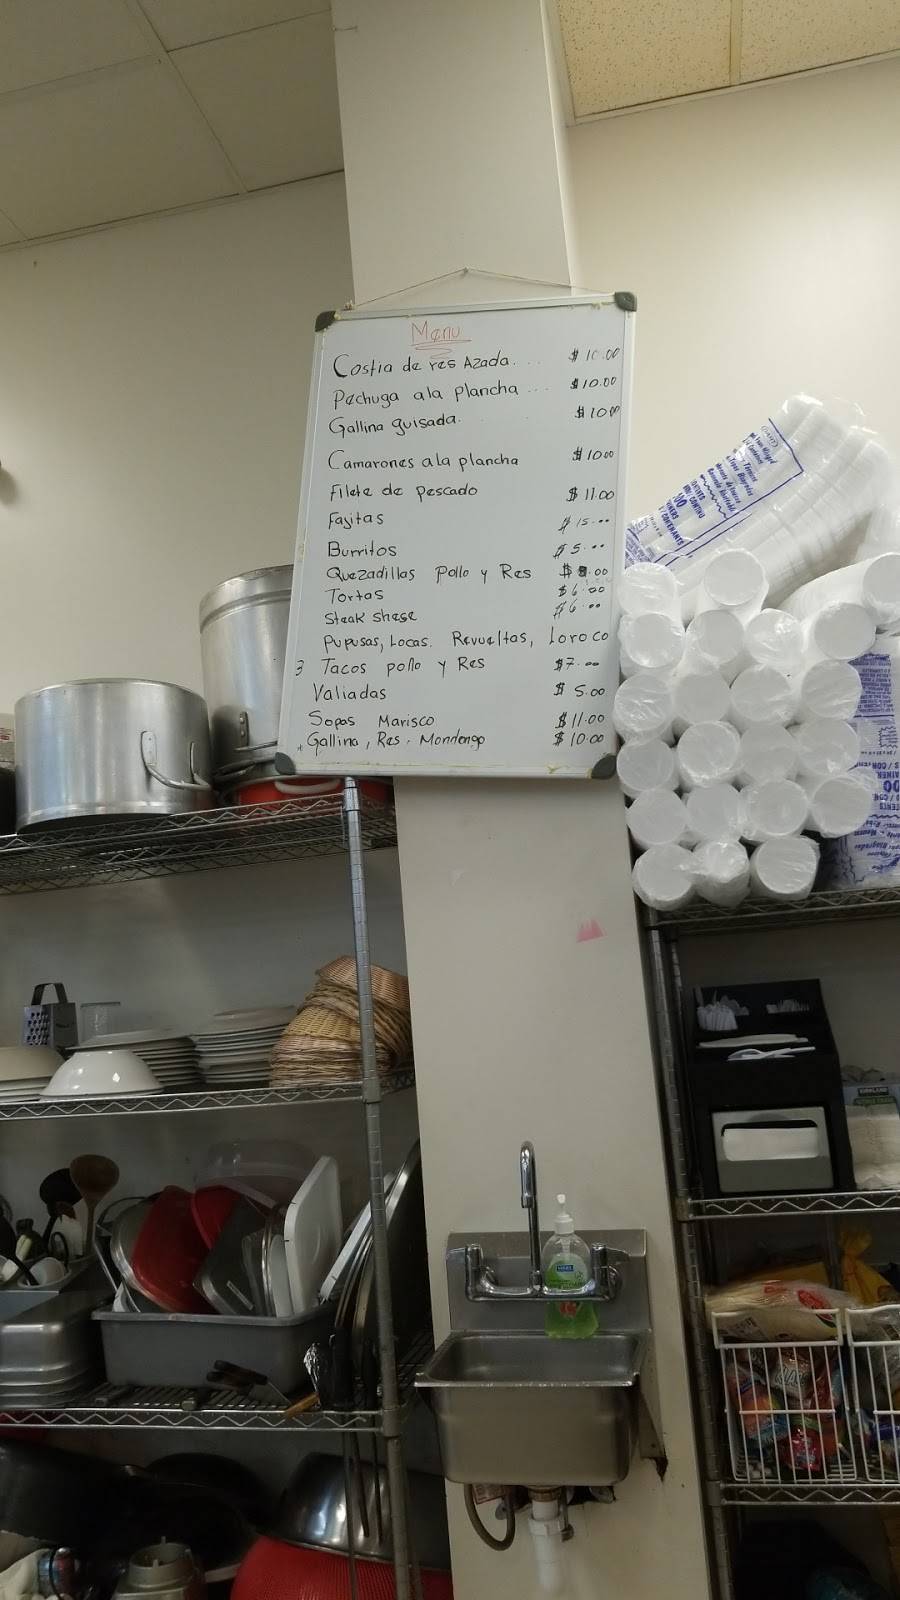 Menu
Costia de res Azada.... $10.00
Pechuga ala plancha ... $10.00
Gallina guisada. . . . $10.00
Camarones ala plancha $10.00
Filete de pescado $11.00
Fajitas $15.00
Burritos $5.00
Quezadillas pollo y Res $8.00
Tortas $6.00
Steak shese $6.00
Pupusas, Locas. Revueltas, Loroco
3 Tacos pollo y Res $7.00
Valiadas $5.00
Sopas Marisco $11.00
* Gallina, Res, Mondongo $10.00